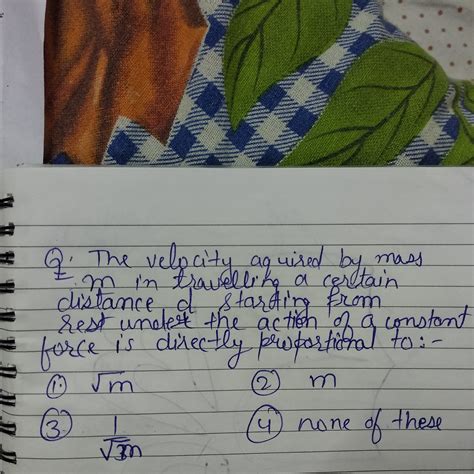 Q. The velocity aquired by mass
m in travelling a certain
distance d starting from
rest under the action of a constant
force is directly proportional to:-
① √m ② m
③ 1/√m ④ none of these